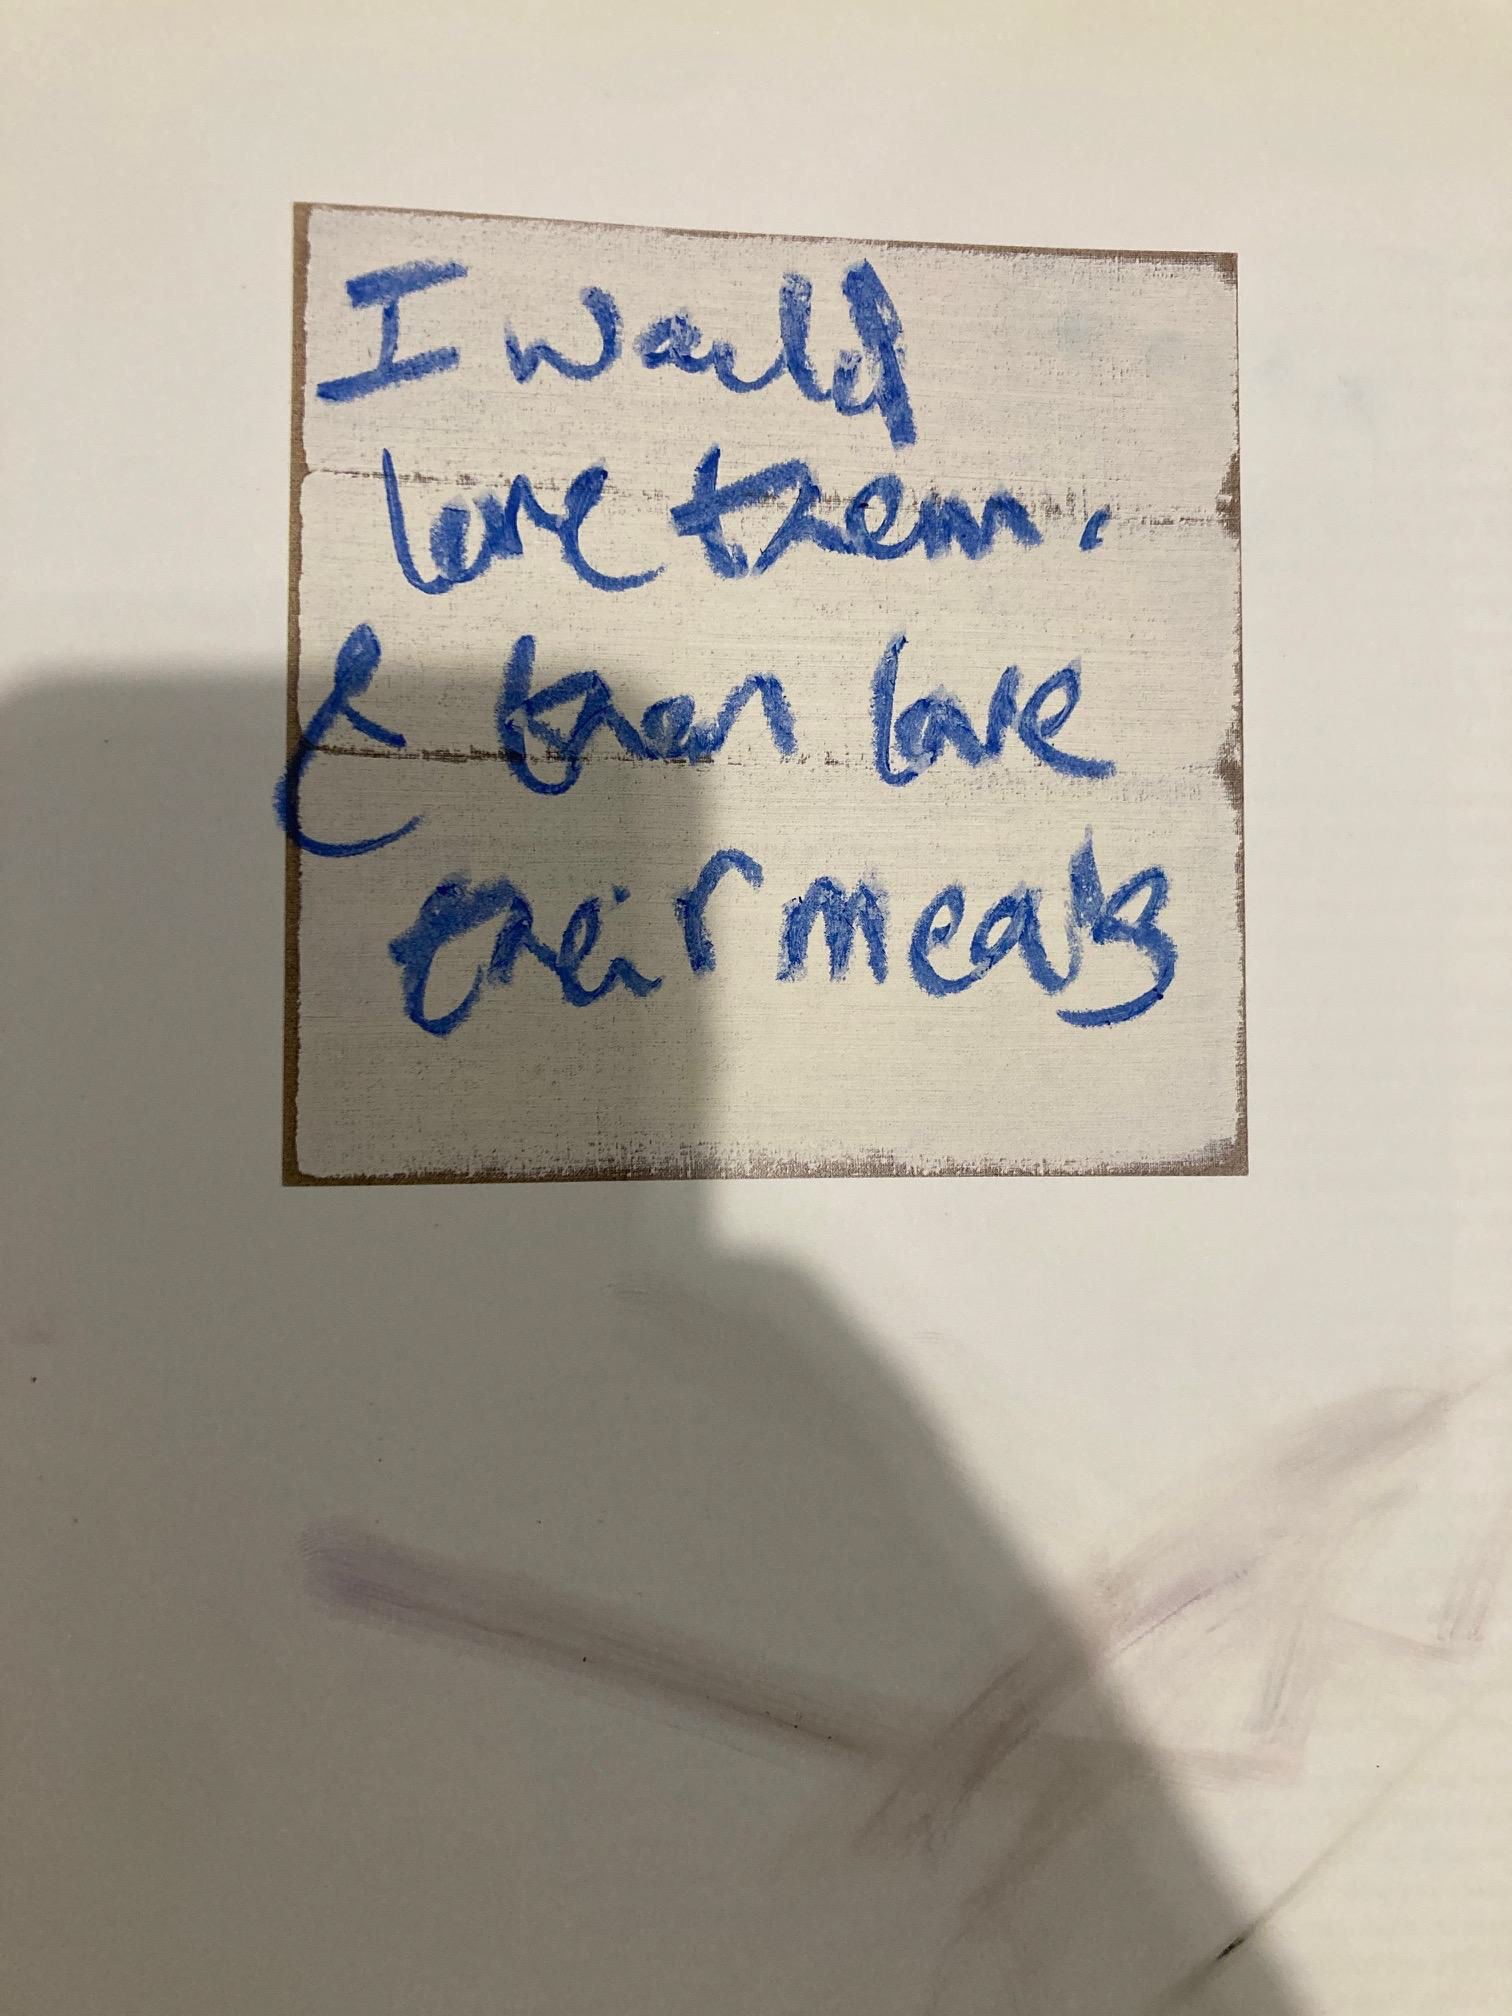 I would
love them.
& then love
their meals